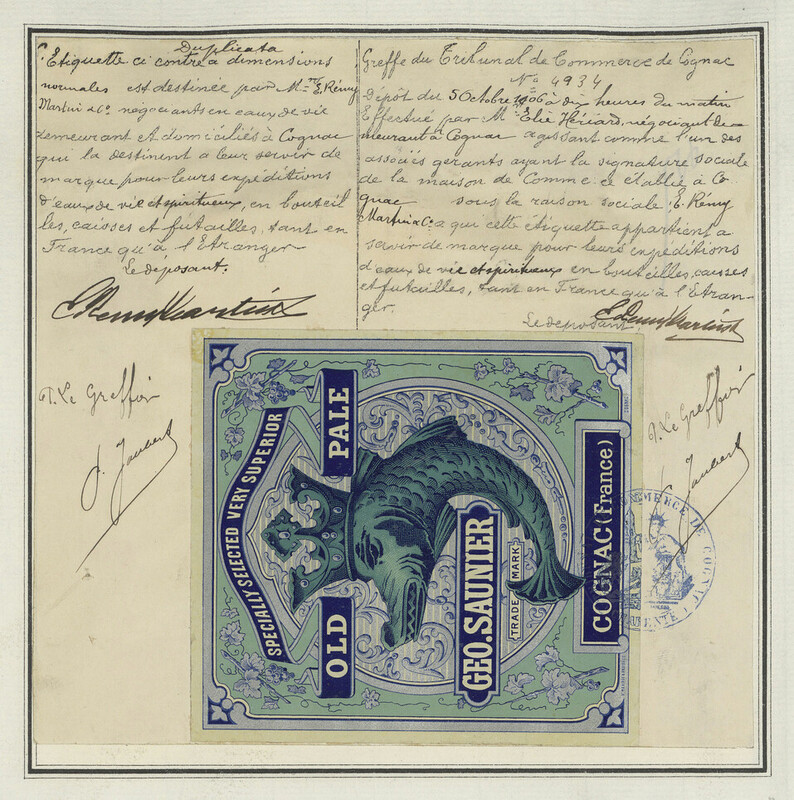 Duplicata
L'Etiquette ci contre à dimensions
normales est destinée par M.rs E. Rémy
Martin & Co. négociants en eaux de vie
demeurant et domiciliés à Cognac
qui la destinent à leur servir de
marque pour leurs expéditions
d'eaux de vie et spiritueux, en bouteil
les, caisses et futailles, tant en
France qu'à l'Etranger
Le déposant.
E. Remy Martin & Co
P. Le Greffier
J. Jaubert
Greffe du Tribunal de Commerce de Cognac
No 4934
Dépôt du 5 Octobre 1906 à dix heures du matin
Effectué par M. Elie Hériard, négociant de-
meurant à Cognac agissant comme l'un des
associés gérants ayant la signature sociale
de la maison de Commerce établie à Co
gnac sous la raison sociale: E. Rémy
Martin & Co. a qui cette étiquette appartient a
servir de marque pour leurs expéditions
d'eaux de vie et spiritueux en bouteilles, caisses
et futailles, tant en France qu'à l'Etran-
ger.
Le déposant,
E. Remy Martin & Co
P. Le Greffier
J. Jaubert
SPECIALLY SELECTED VERY SUPERIOR
OLD PALE
GEO. SAUNIER
TRADE MARK
COGNAC (France)
COMMERCE DE COGNAC